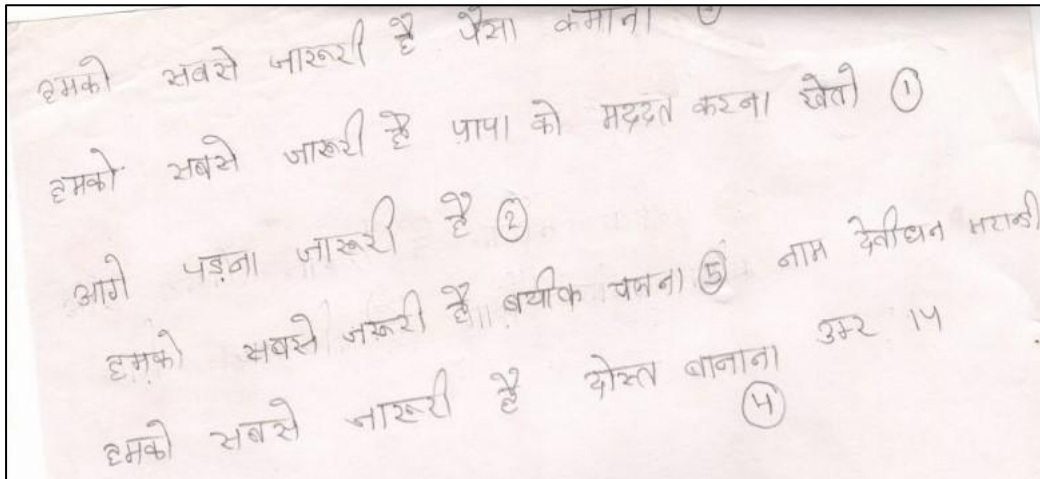 हमको सबसे जारूरी है पैसा कमाना
हमको सबसे जारूरी है पापा को मद्दत करना खेतो ①
आगे पड़ना जारूरी है ②
हमको सबसे जरूरी है बयीक ⑤ नाम देवीधन मरान्डी
हमको सबसे जारूरी है दोस्त बानाना उम्र 14
④